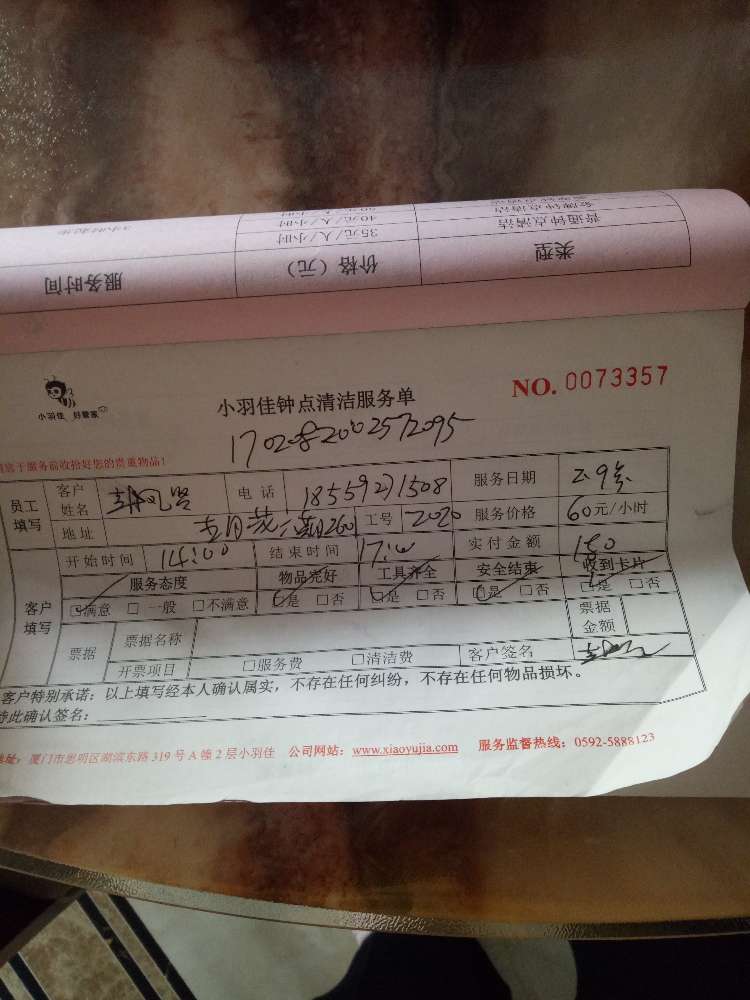 普通钟点清洁 35元/人/小时
类型 价格（元） 服务时间
小羽佳 好管家
小羽佳钟点清洁服务单
NO. 0073357
1702082002572095
请您于服务前收拾好您的贵重物品！
员工填写 客户姓名 电话 18559271508 服务日期
地址 工号 2020 服务价格 60元/小时
开始时间 14:00 结束时间 17:00 实付金额 180
客户填写 服务态度 物品完好 工具齐全 安全结束 收到卡片
□满意 □一般 □不满意 □是 □否 □是 □否 □是 □否 □是 □否
票据 票据名称 票据金额
开票项目 □服务费 □清洁费 客户签名
客户特别承诺：以上填写经本人确认属实，不存在任何纠纷，不存在任何物品损坏。
特此确认签名：
地址：厦门市思明区湖滨东路319号A幢2层小羽佳 公司网站：www.xiaoyujia.com 服务监督热线：0592-5888123